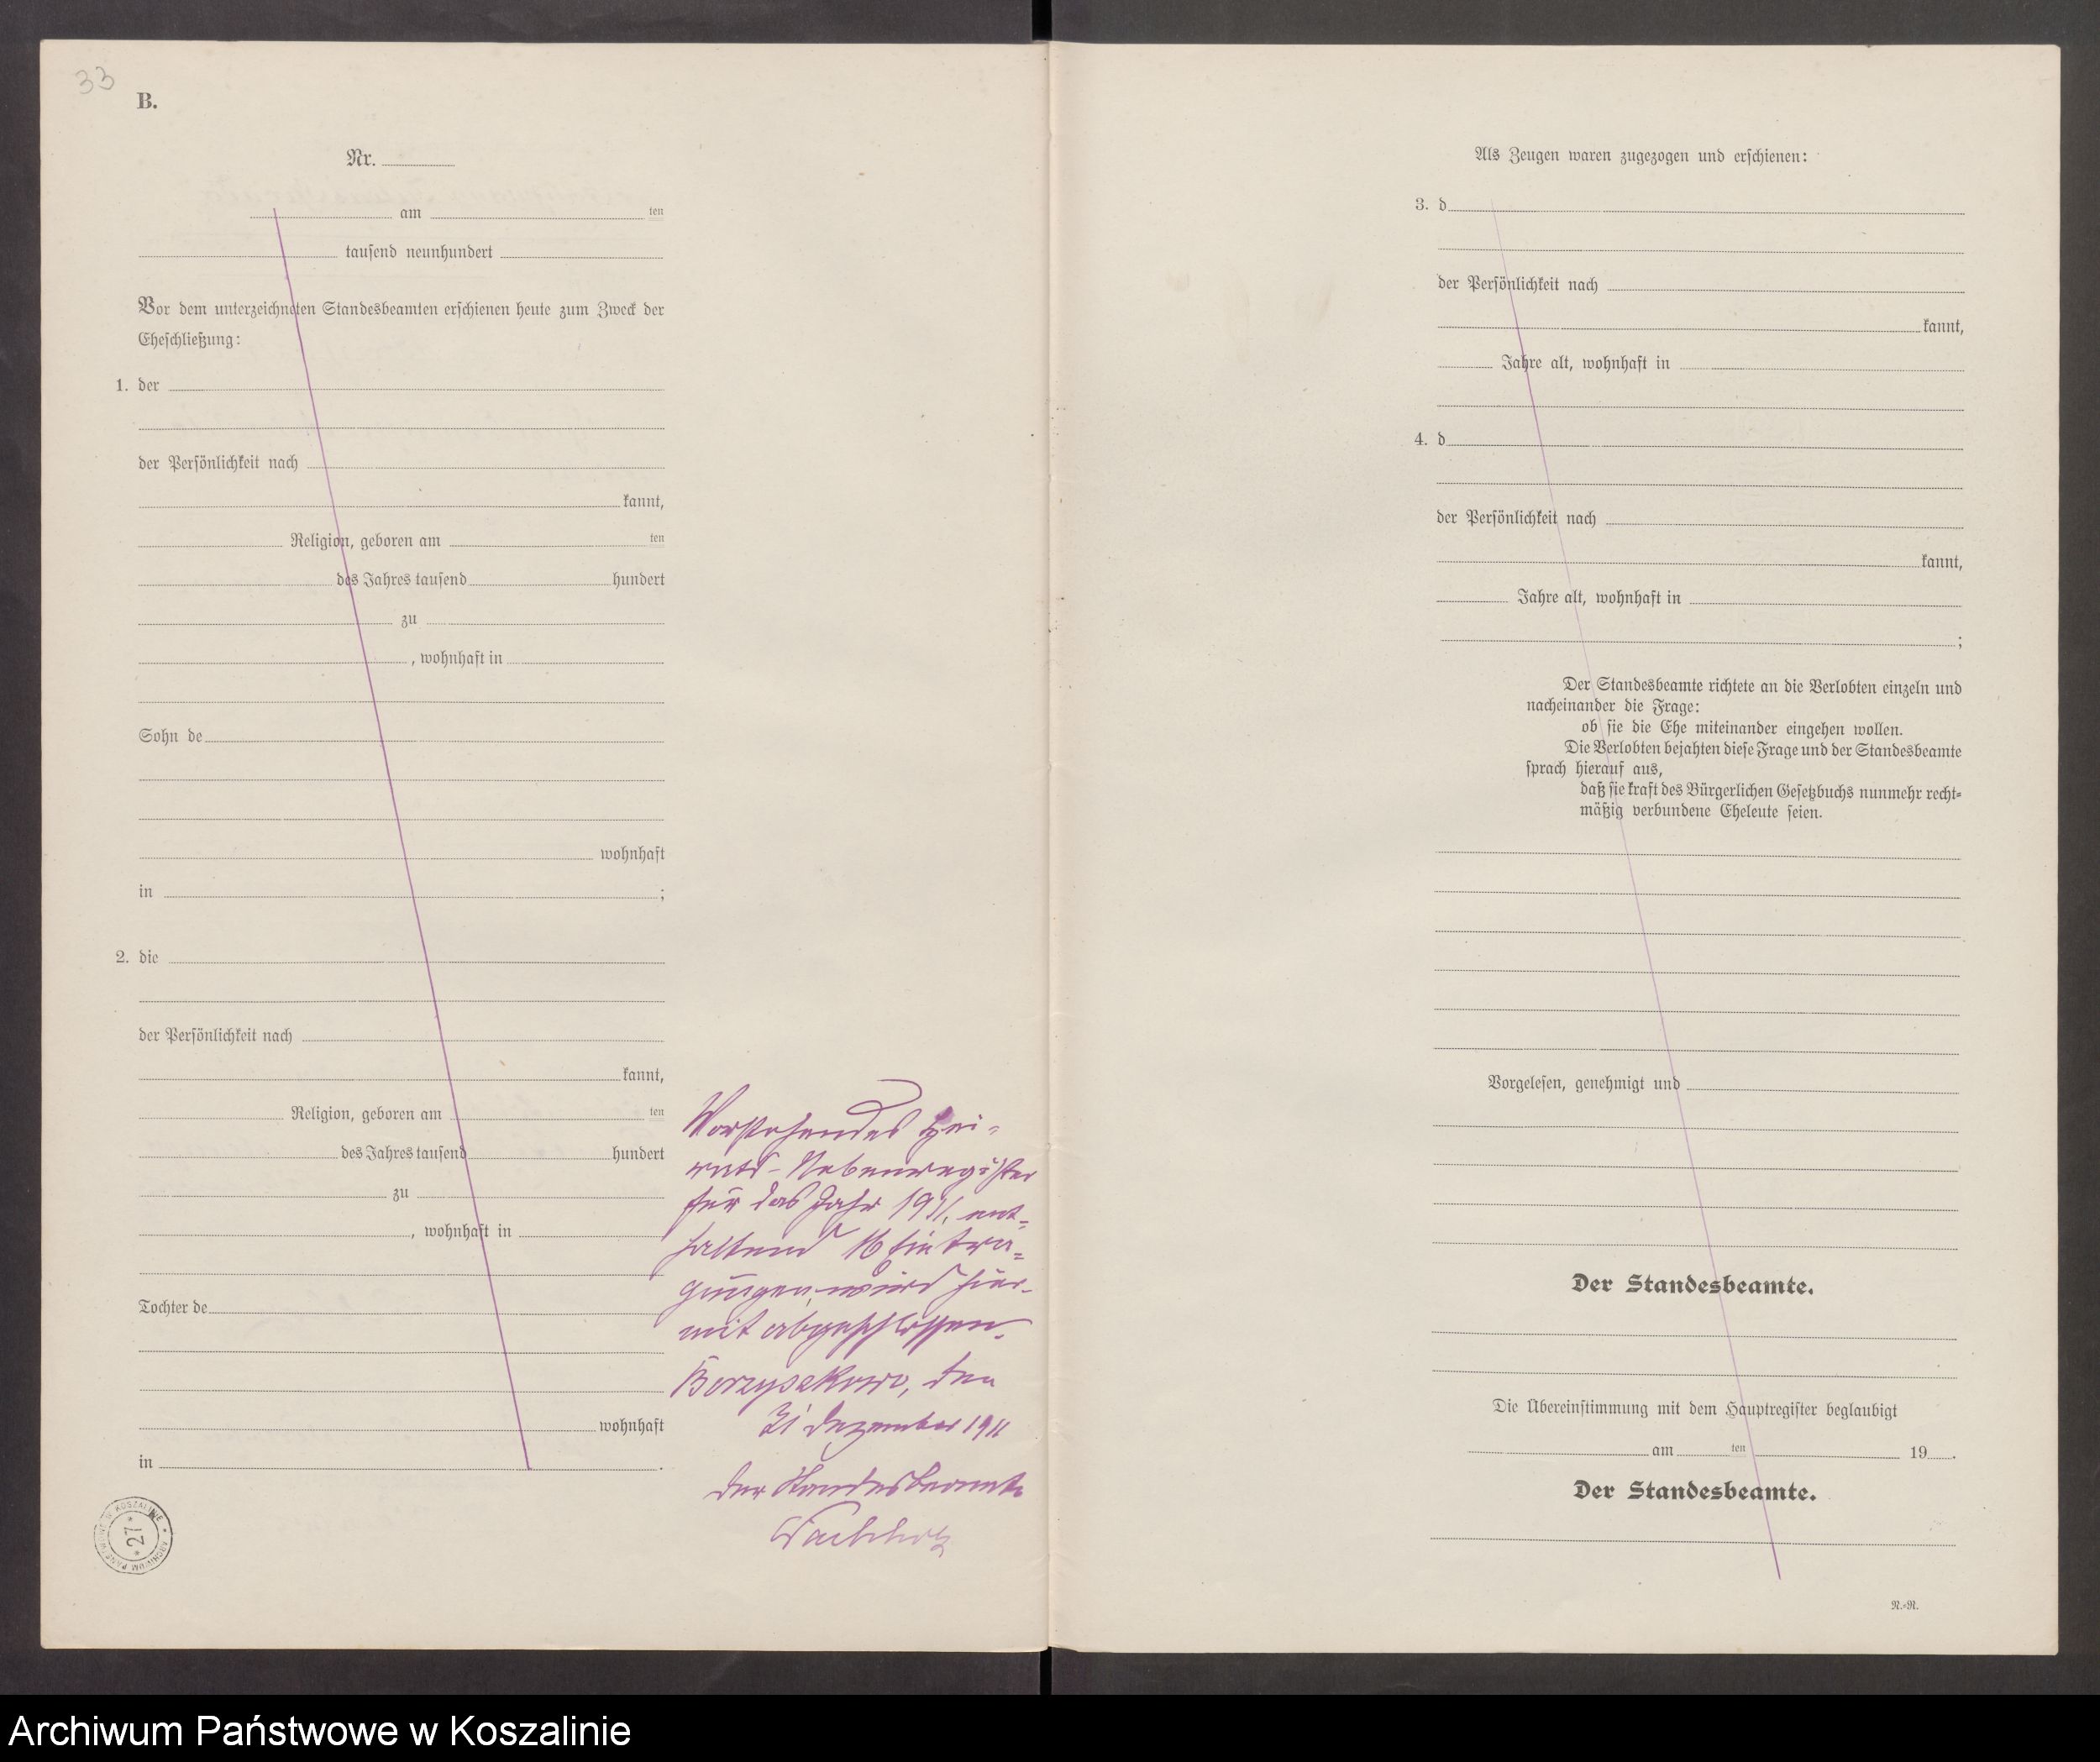 33
B.
Nr.
am ten
tausend neunhundert
Vor dem unterzeichneten Standesbeamten erschienen heute zum Zweck der
Eheschließung:
1. der
der Persönlichkeit nach
kannt,
Religion, geboren am ten
des Jahres tausend hundert
zu
, wohnhaft in
Sohn de
wohnhaft
in ;
2. die
der Persönlichkeit nach
kannt,
Religion, geboren am ten
des Jahres tausend hundert
zu
, wohnhaft in
Tochter de
wohnhaft
in .
Vorstehendes Hei-
rats-Nebenregister
für das Jahr 1911, ent-
haltend 16 Eintra-
gungen, wird hier-
mit abgeschlossen.
Borzyszkowo, den
31 Dezember 1911
Der Standesbeamte
ARCHIWUM PAŃSTWOWE W KOSZALINIE
* 27 *
Als Zeugen waren zugezogen und erschienen:
3. d
der Persönlichkeit nach
kannt,
Jahre alt, wohnhaft in
4. d
der Persönlichkeit nach
kannt,
Jahre alt, wohnhaft in
;
Der Standesbeamte richtete an die Verlobten einzeln und
nacheinander die Frage:
ob sie die Ehe miteinander eingehen wollen.
Die Verlobten bejahten diese Frage und der Standesbeamte
sprach hierauf aus,
daß sie kraft des Bürgerlichen Gesetzbuchs nunmehr recht-
mäßig verbundene Eheleute seien.
Vorgelesen, genehmigt und
Der Standesbeamte.
Die Übereinstimmung mit dem Hauptregister beglaubigt
am ten 19 .
Der Standesbeamte.
N.-R.
Archiwum Państwowe w Koszalinie